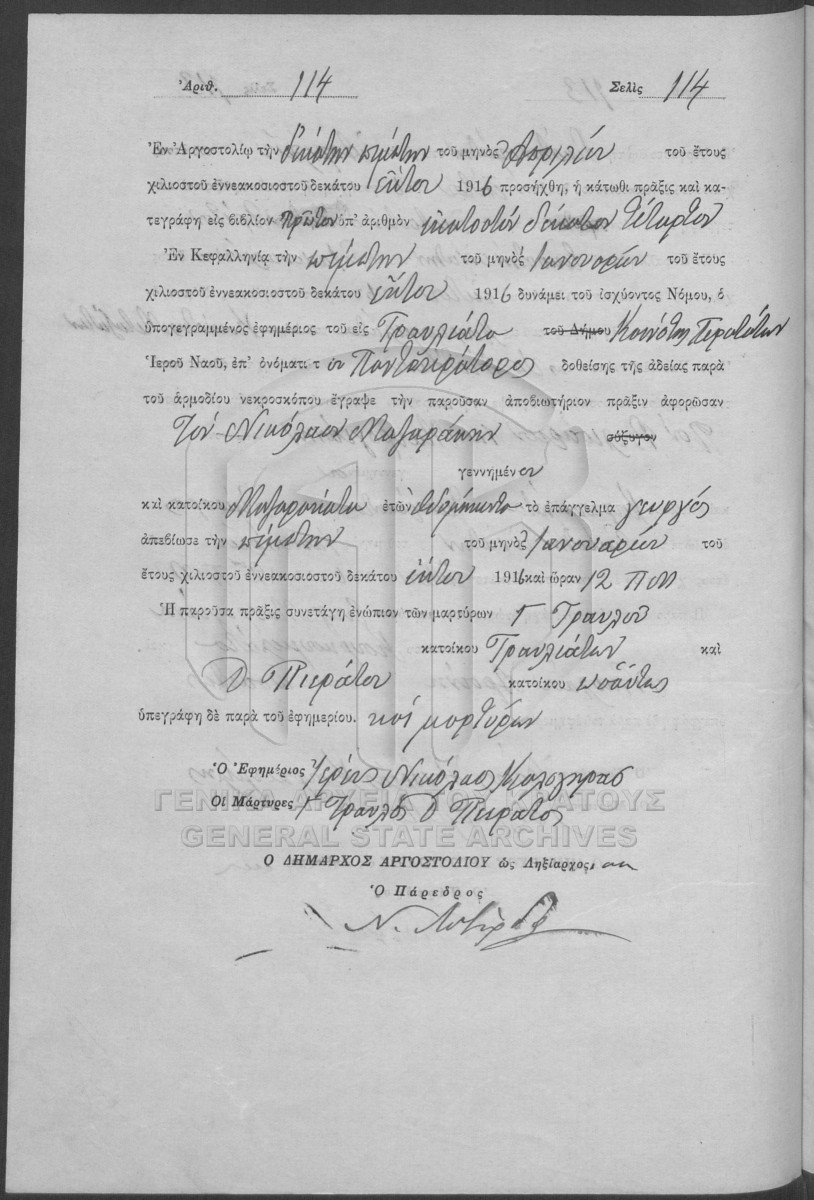 Ἀριθ. 114 Σελὶς 114
Ἐν Ἀργοστολίῳ τὴν δεκάτην πέμπτην τοῦ μηνὸς Ἀπριλίου τοῦ ἔτους
χιλιοστοῦ ἐννεακοσιοστοῦ δεκάτου ἕκτου 1916 προσήχθη, ἡ κάτωθι πρᾶξις καὶ κα-
τεγράφη εἰς βιβλίον πρῶτον ὑπ' ἀριθμὸν ἑκατοστὸν δέκατον τέταρτον
Ἐν Κεφαλληνίᾳ τὴν πέμπτην τοῦ μηνὸς Ἰανουαρίου τοῦ ἔτους
χιλιοστοῦ ἐννεακοσιοστοῦ δεκάτου ἕκτου 1916 δυνάμει τοῦ ἰσχύοντος Νόμου, ὁ
ὑπογεγραμμένος ἐφημέριος τοῦ εἰς Τραυλιάτα τοῦ Δήμου Κοινότης Περατάτων
Ἱεροῦ Ναοῦ, ἐπ' ὀνόματι τ οῦ Παντοκράτορος, δοθείσης τῆς ἀδείας παρὰ
τοῦ ἁρμοδίου νεκροσκόπου ἔγραψε τὴν παροῦσαν ἀποβιωτήριον πρᾶξιν ἀφορῶσαν
Τὸν Νικόλαον Μαζαράκην σύζυγον
γεννημένον
καὶ κατοίκου Μαζαρακάτα ἐτῶν ἑβδομήκοντα τὸ ἐπάγγελμα γεωργός
ἀπεβίωσε τὴν πέμπτην τοῦ μηνὸς Ἰανουαρίου τοῦ
ἔτους χιλιοστοῦ ἐννεακοσιοστοῦ δεκάτου ἕκτου 1916 καὶ ὥραν 12 Π Μ
Ἡ παροῦσα πρᾶξις συνετάγη ἐνώπιον τῶν μαρτύρων Γ Τραυλοῦ
κατοίκου Τραυλιάτων καὶ
Δ Περάτου κατοίκου ὡσαύτως
ὑπεγράφη δὲ παρὰ τοῦ ἐφημερίου. καὶ μαρτύρων
Ὁ Ἐφημέριος Ἱερεὺς Νικόλαος Καλογηρᾶς
Οἱ Μάρτυρες Γ Τραυλὸς Δ Περάτος
ΓΕΝΙΚΑ ΑΡΧΕΙΑ ΤΟΥ ΚΡΑΤΟΥΣ
GENERAL STATE ARCHIVES
Ο ΔΗΜΑΡΧΟΣ ΑΡΓΟΣΤΟΛΙΟΥ ὡς Ληξίαρχος,
Ὁ Πάρεδρος